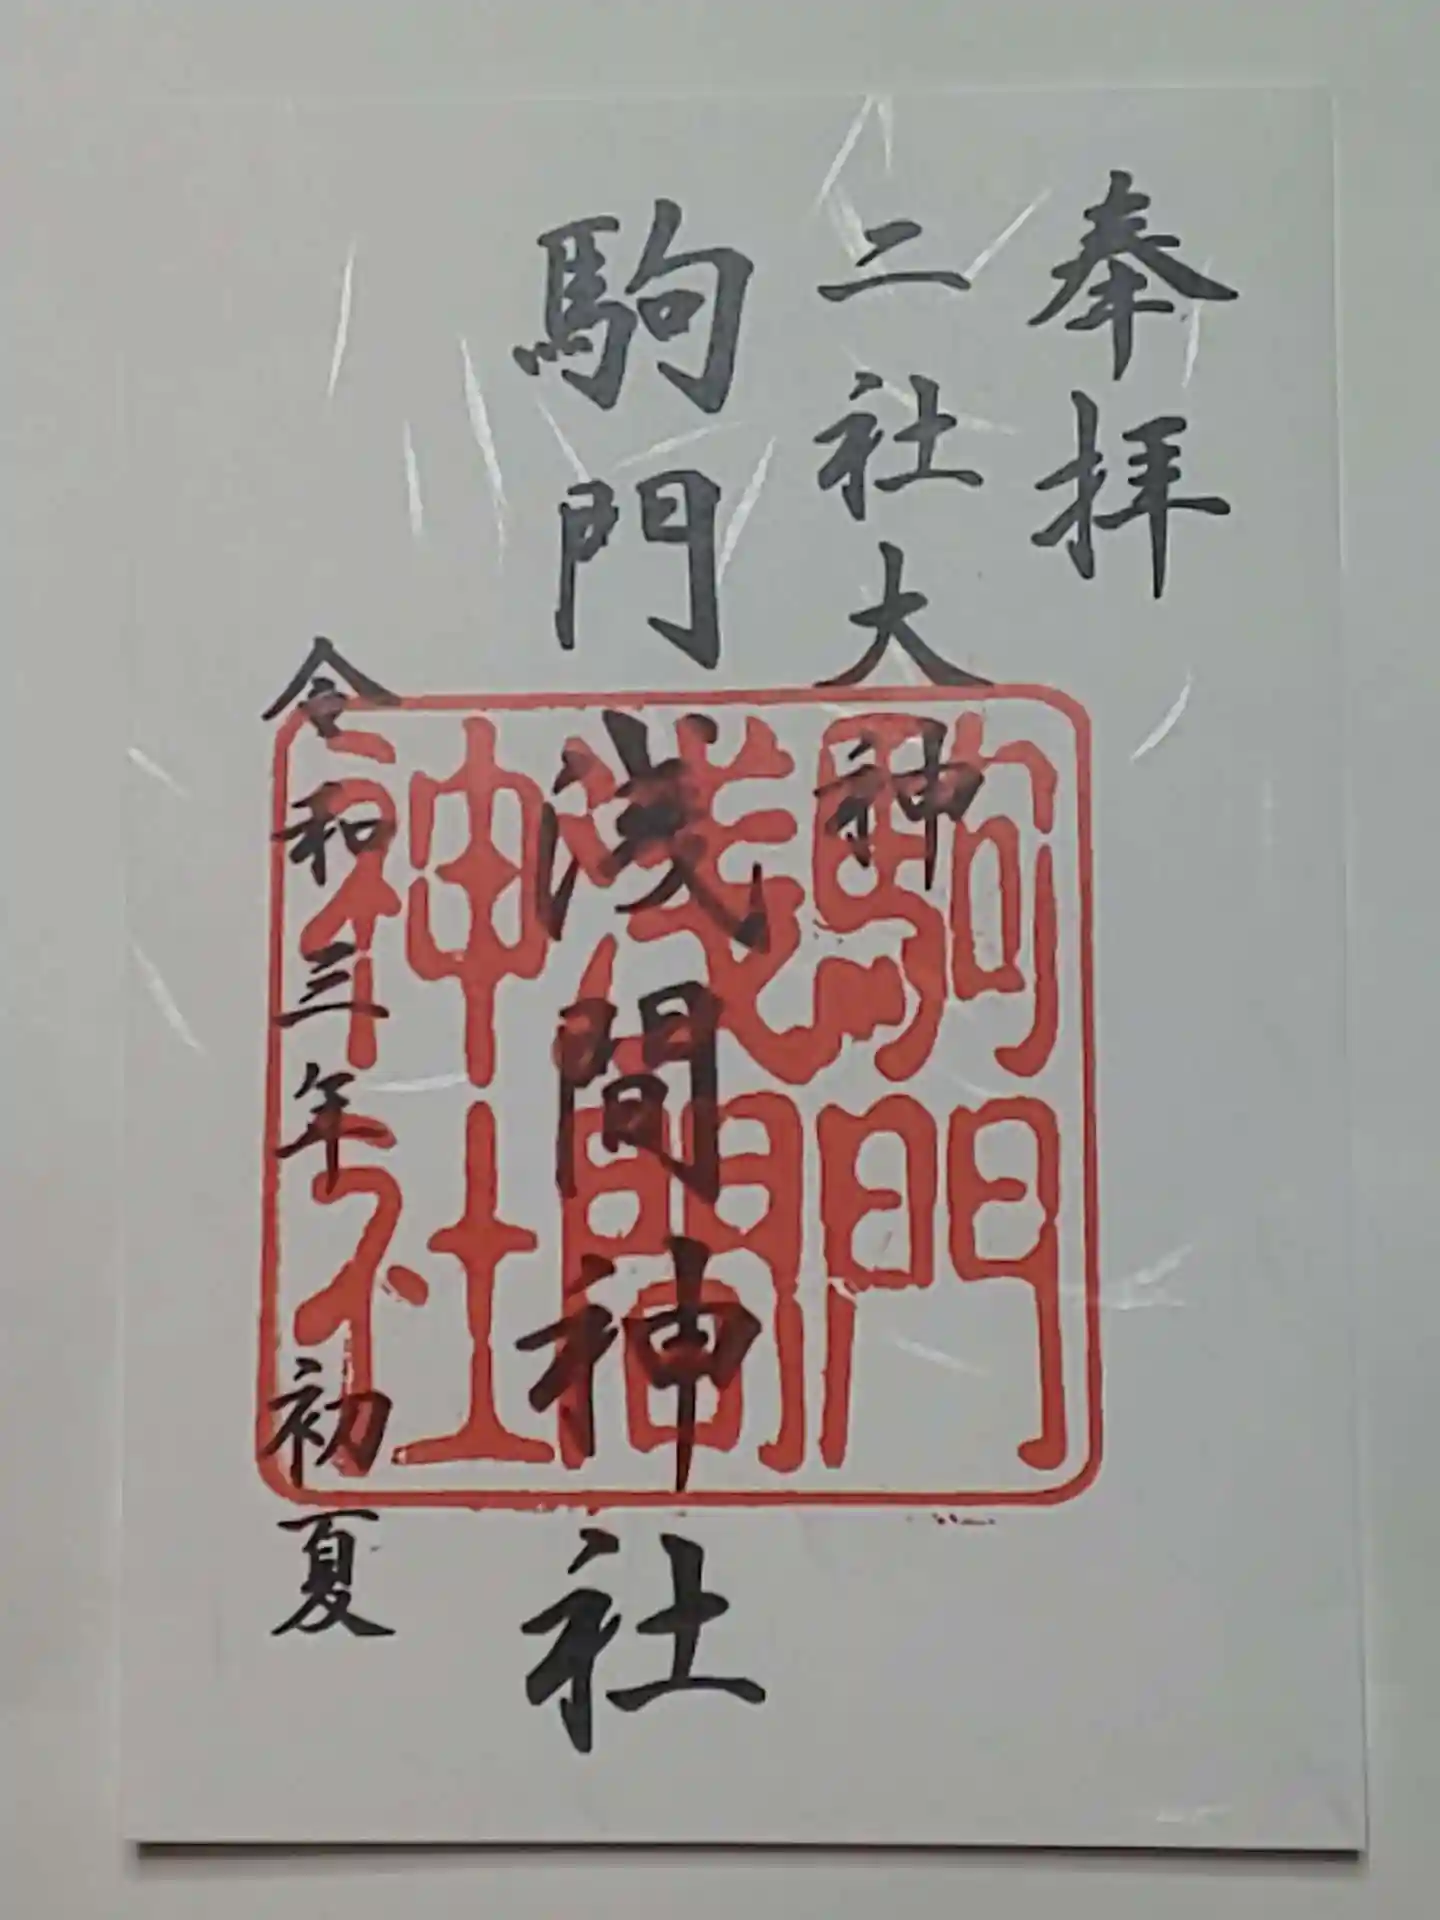 奉拝
二社大神
駒門浅間神社
令和三年 初夏
駒門
浅間
神社